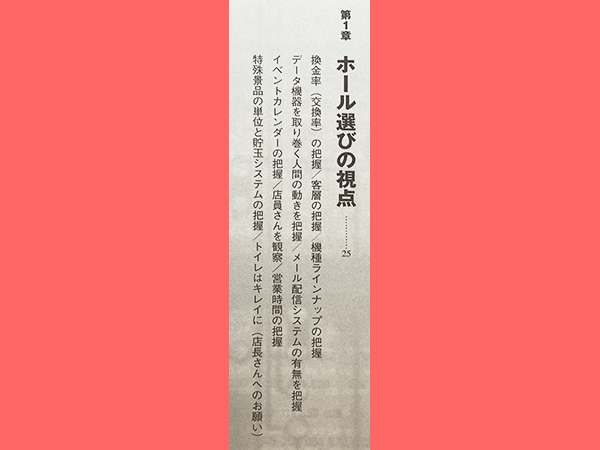 第1章
ホール選びの視点…………25
換金率（交換率）の把握／客層の把握／機種ラインナップの把握
データ機器を取り巻く人間の動きを把握／メール配信システムの有無を把握
イベントカレンダーの把握／店員さんを観察／営業時間の把握
特殊景品の単位と貯玉システムの把握／トイレはキレイに（店長さんへのお願い）